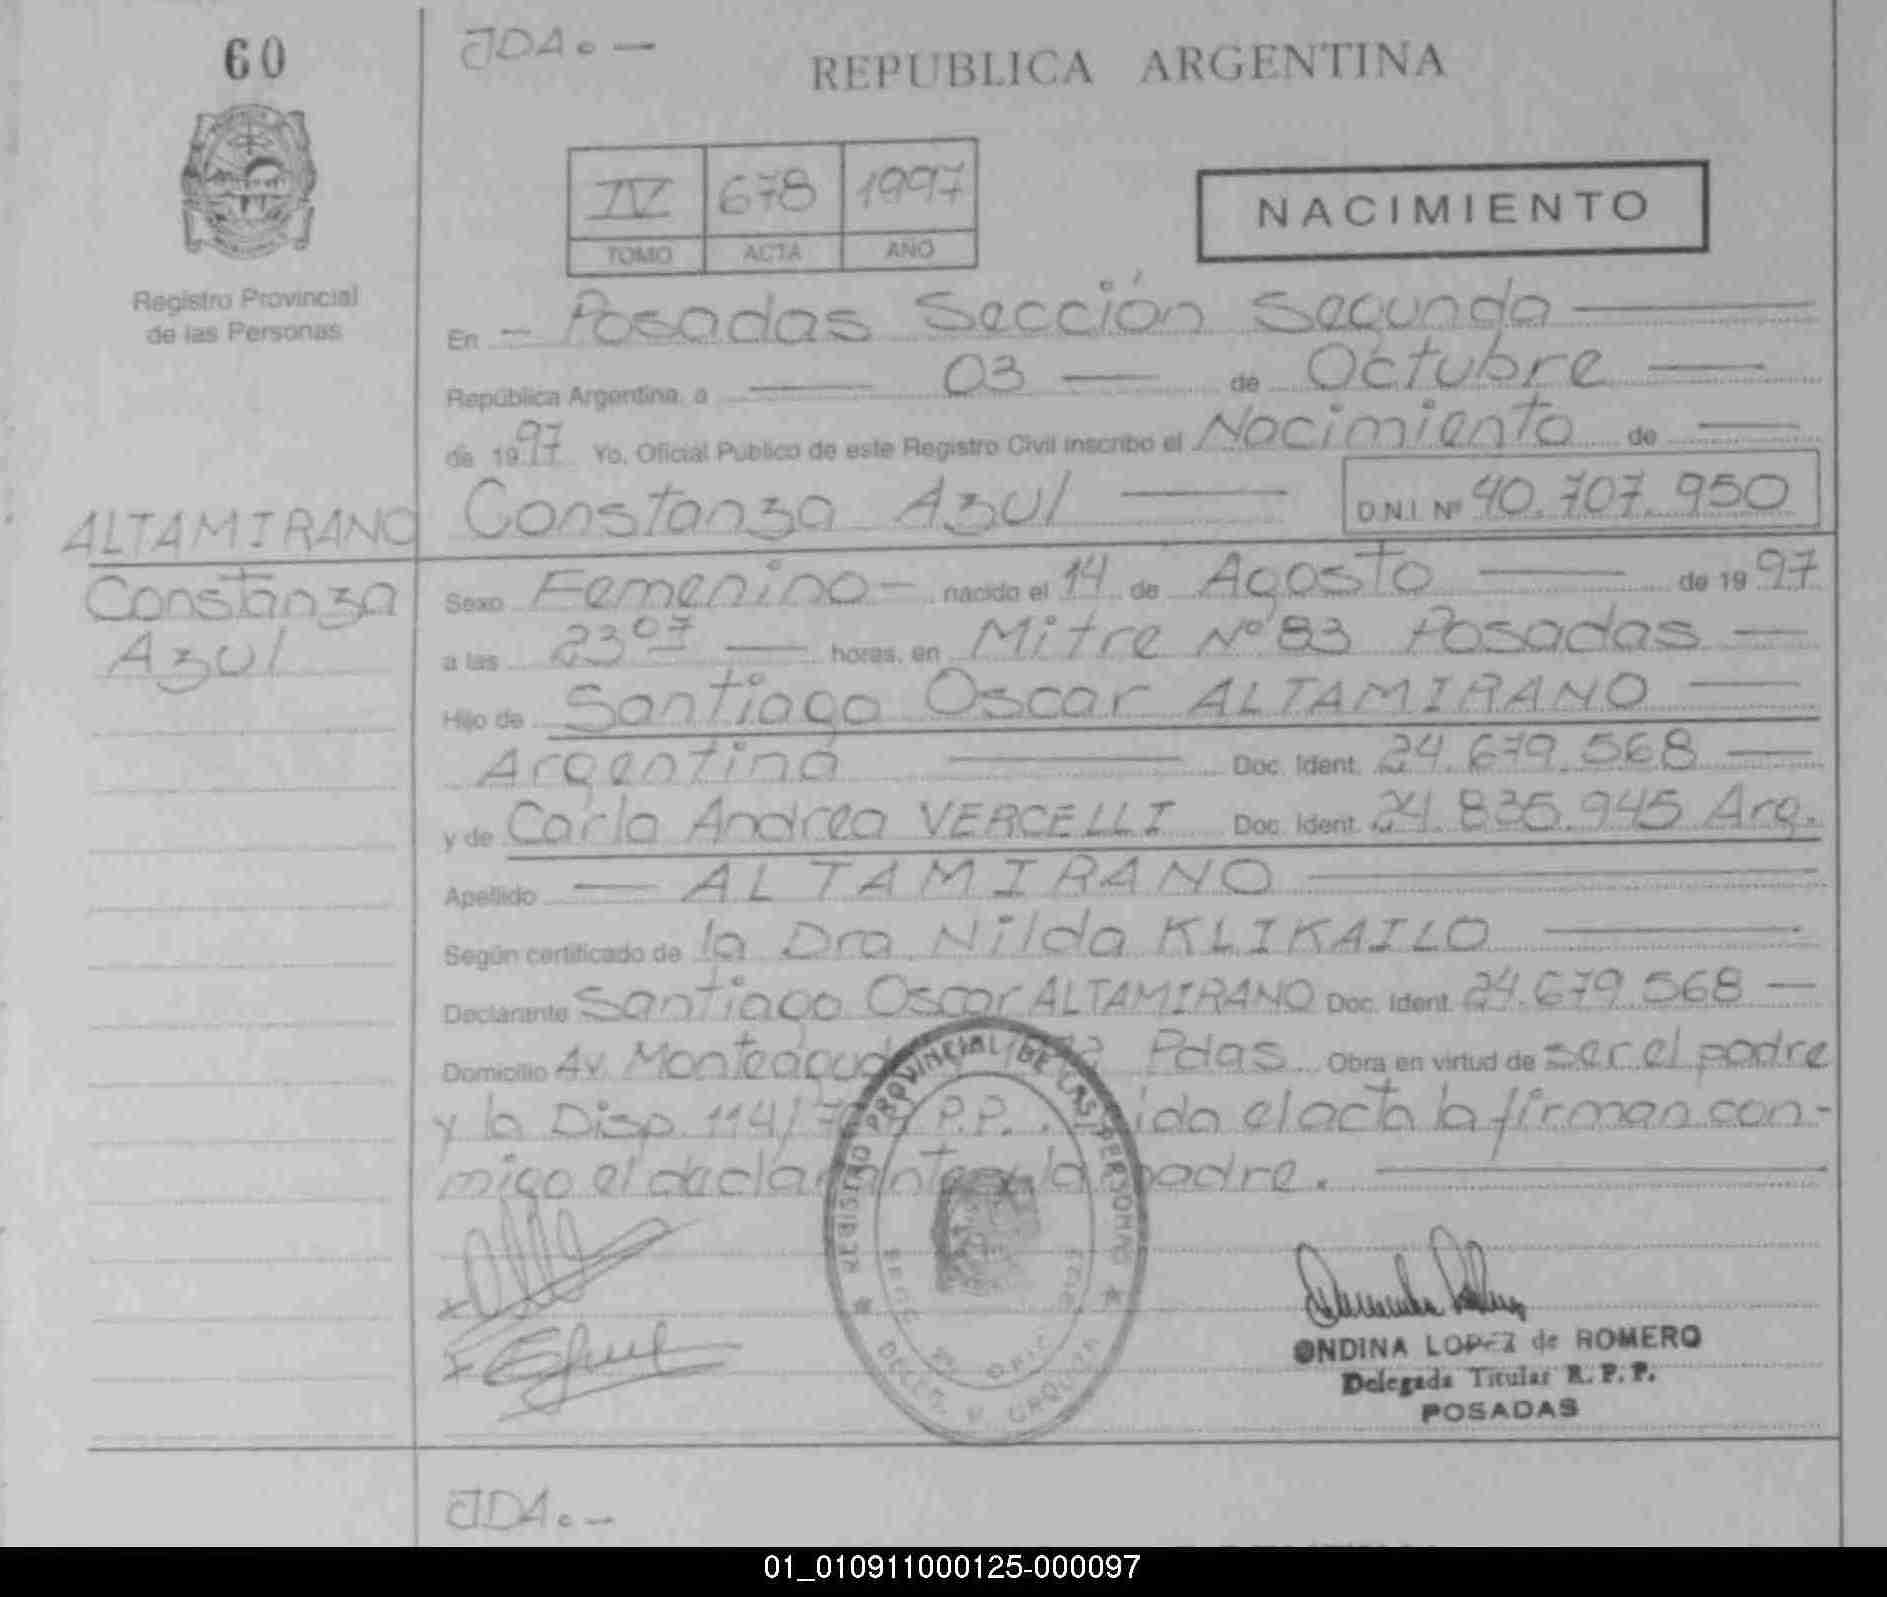 60
JDA.-
REPUBLICA ARGENTINA
IV 678 1997
TOMO ACTA AÑO
NACIMIENTO
Registro Provincial
de las Personas
En - Posadas Sección Segunda
República Argentina, a 03 de Octubre
de 1997 Yo, Oficial Público de este Registro Civil inscribo el Nacimiento de
ALTAMIRANO
Constanza
Azul
Constanza Azul D.N.I. Nº 40.707.950
Sexo Femenino - nacido el 14 de Agosto de 1997
a las 23 07 horas, en Mitre Nº 83 Posadas
Hijo de Santiago Oscar ALTAMIRANO
Argentina Doc. Ident. 24.679.568
y de Carla Andrea VERCELLI Doc. Ident. 24.835.945 Arg.
Apellido ALTAMIRANO
Según certificado de la Dra. Nilda KLIKAILO
Declarante Santiago Oscar ALTAMIRANO Doc. Ident. 24.679.568
Domicilio Av. Pdas. Obra en virtud de ser el padre
y la Disp. 114/ P.P. el acta la firman con-
migo el la madre.
REGISTRO PROVINCIAL DE LAS PERSONAS
ONDINA LOPEZ de ROMERO
Delegada Titular R.P.P.
POSADAS
JDA.-
01_010911000125-000097